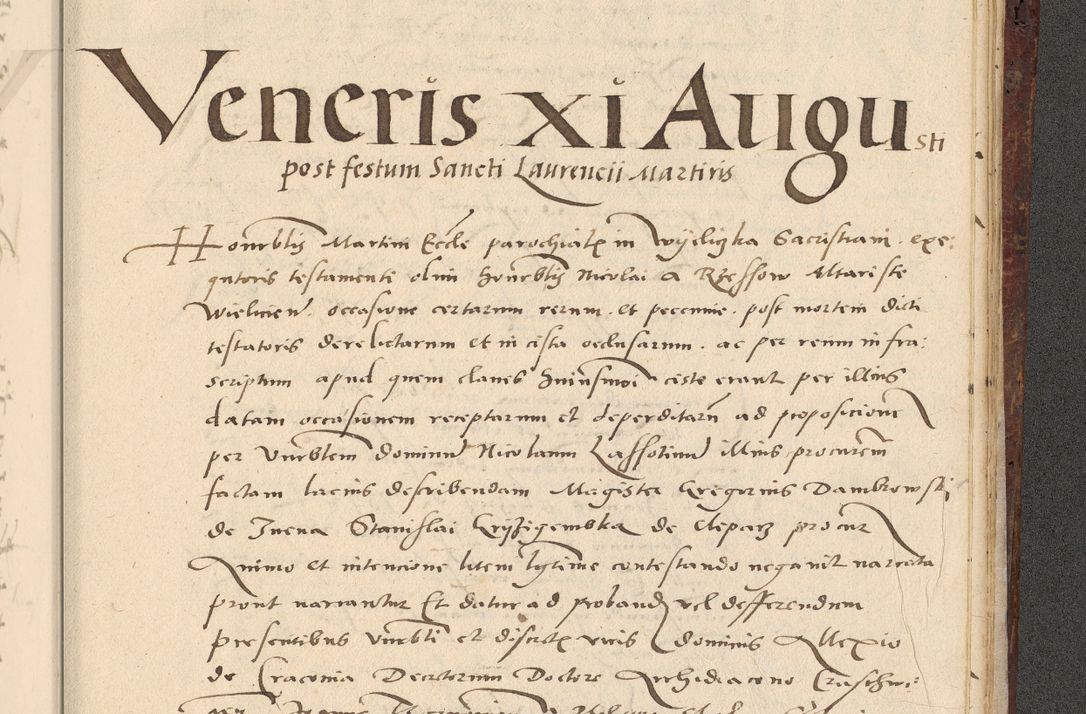 Veneris xi Augusti
post festum Sancti Laurencii Martiris
Honrblis Martin Eccle parochialis in Wyeliczka Sacristiani . exe:
qutoris testamenti olim Honrblis Nicolai a Rzessow Altariste
Wielicien . occasione certarum rerum . et peccunie . post mortem dicti
testatoris derelictarum et in cista occlusarum . ac per reum infra:
scriptum apud quem claves huiusmoi ciste erant per illius
datam occasionem receptarum et deperditarum ad proposicione
per Vnrblem dominum Nicolaum Lassotinum illius procurem
factam lacius describendam Magister Gregorius Dambrowski
de Stanislai de Cleparz procur
Animo et intencione litem lgtime contestando negavit narrata
prout narrantur Et datur ad proband vel defferendum
presentibus Vnrbli et discretis viris dominis Allexio
de Craconia Decretorum Doctore Archidiacono